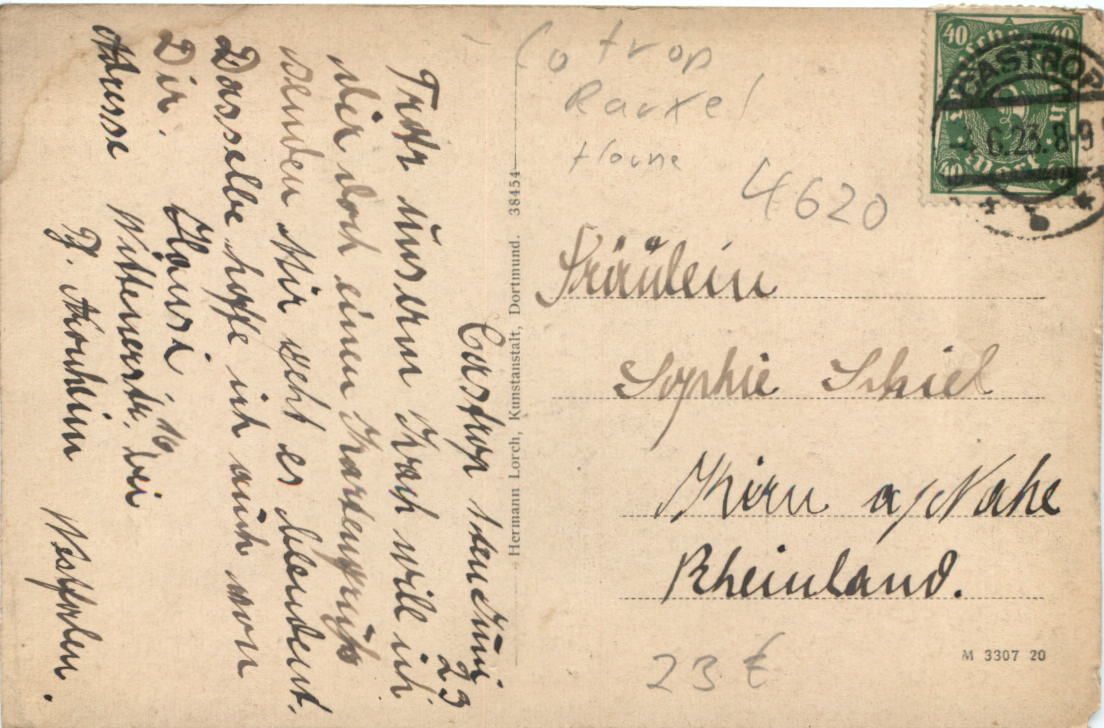 Castrop 1ten Juni
23
Trotz unserm Krach will ich
Dir doch einen Kartengruß
senden Mir geht es blendent.
Dasselbe hoffe ich auch von
Dir.
Hansi.
Adresse Wittenerstr. 16 bei
Westfalen.
Hermann Lorch, Kunstanstalt, Dortmund. 38454
Castrop
Rauxel
Herne
4620
40 40
CASTROP
6.23.8-9
40 40
Fräulein
Sophie Schiel
Kirn a/Nahe
Rheinland.
23 €
M 3307 20